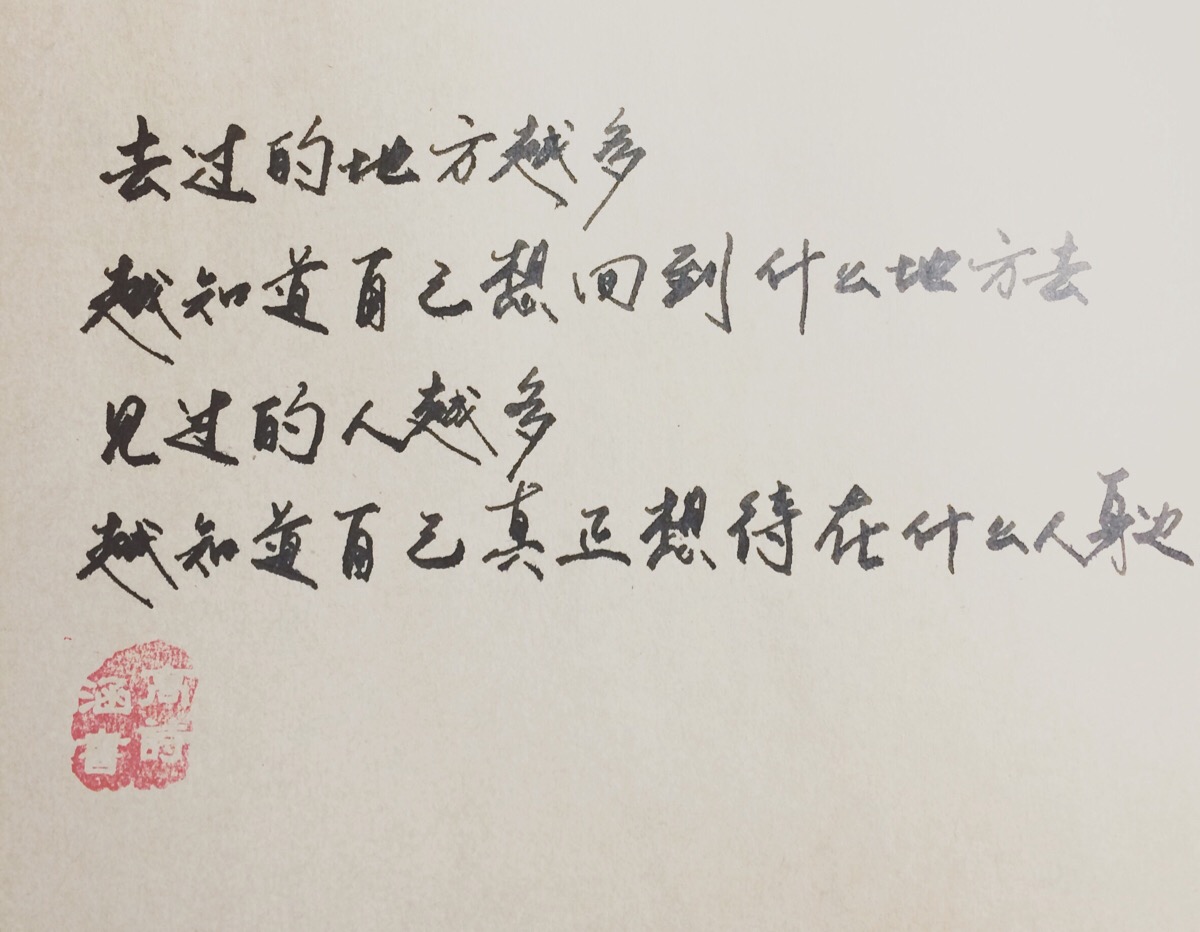 去过的地方越多
越知道自己想回到什么地方去
见过的人越多
越知道自己真正想待在什么人身边
涵书